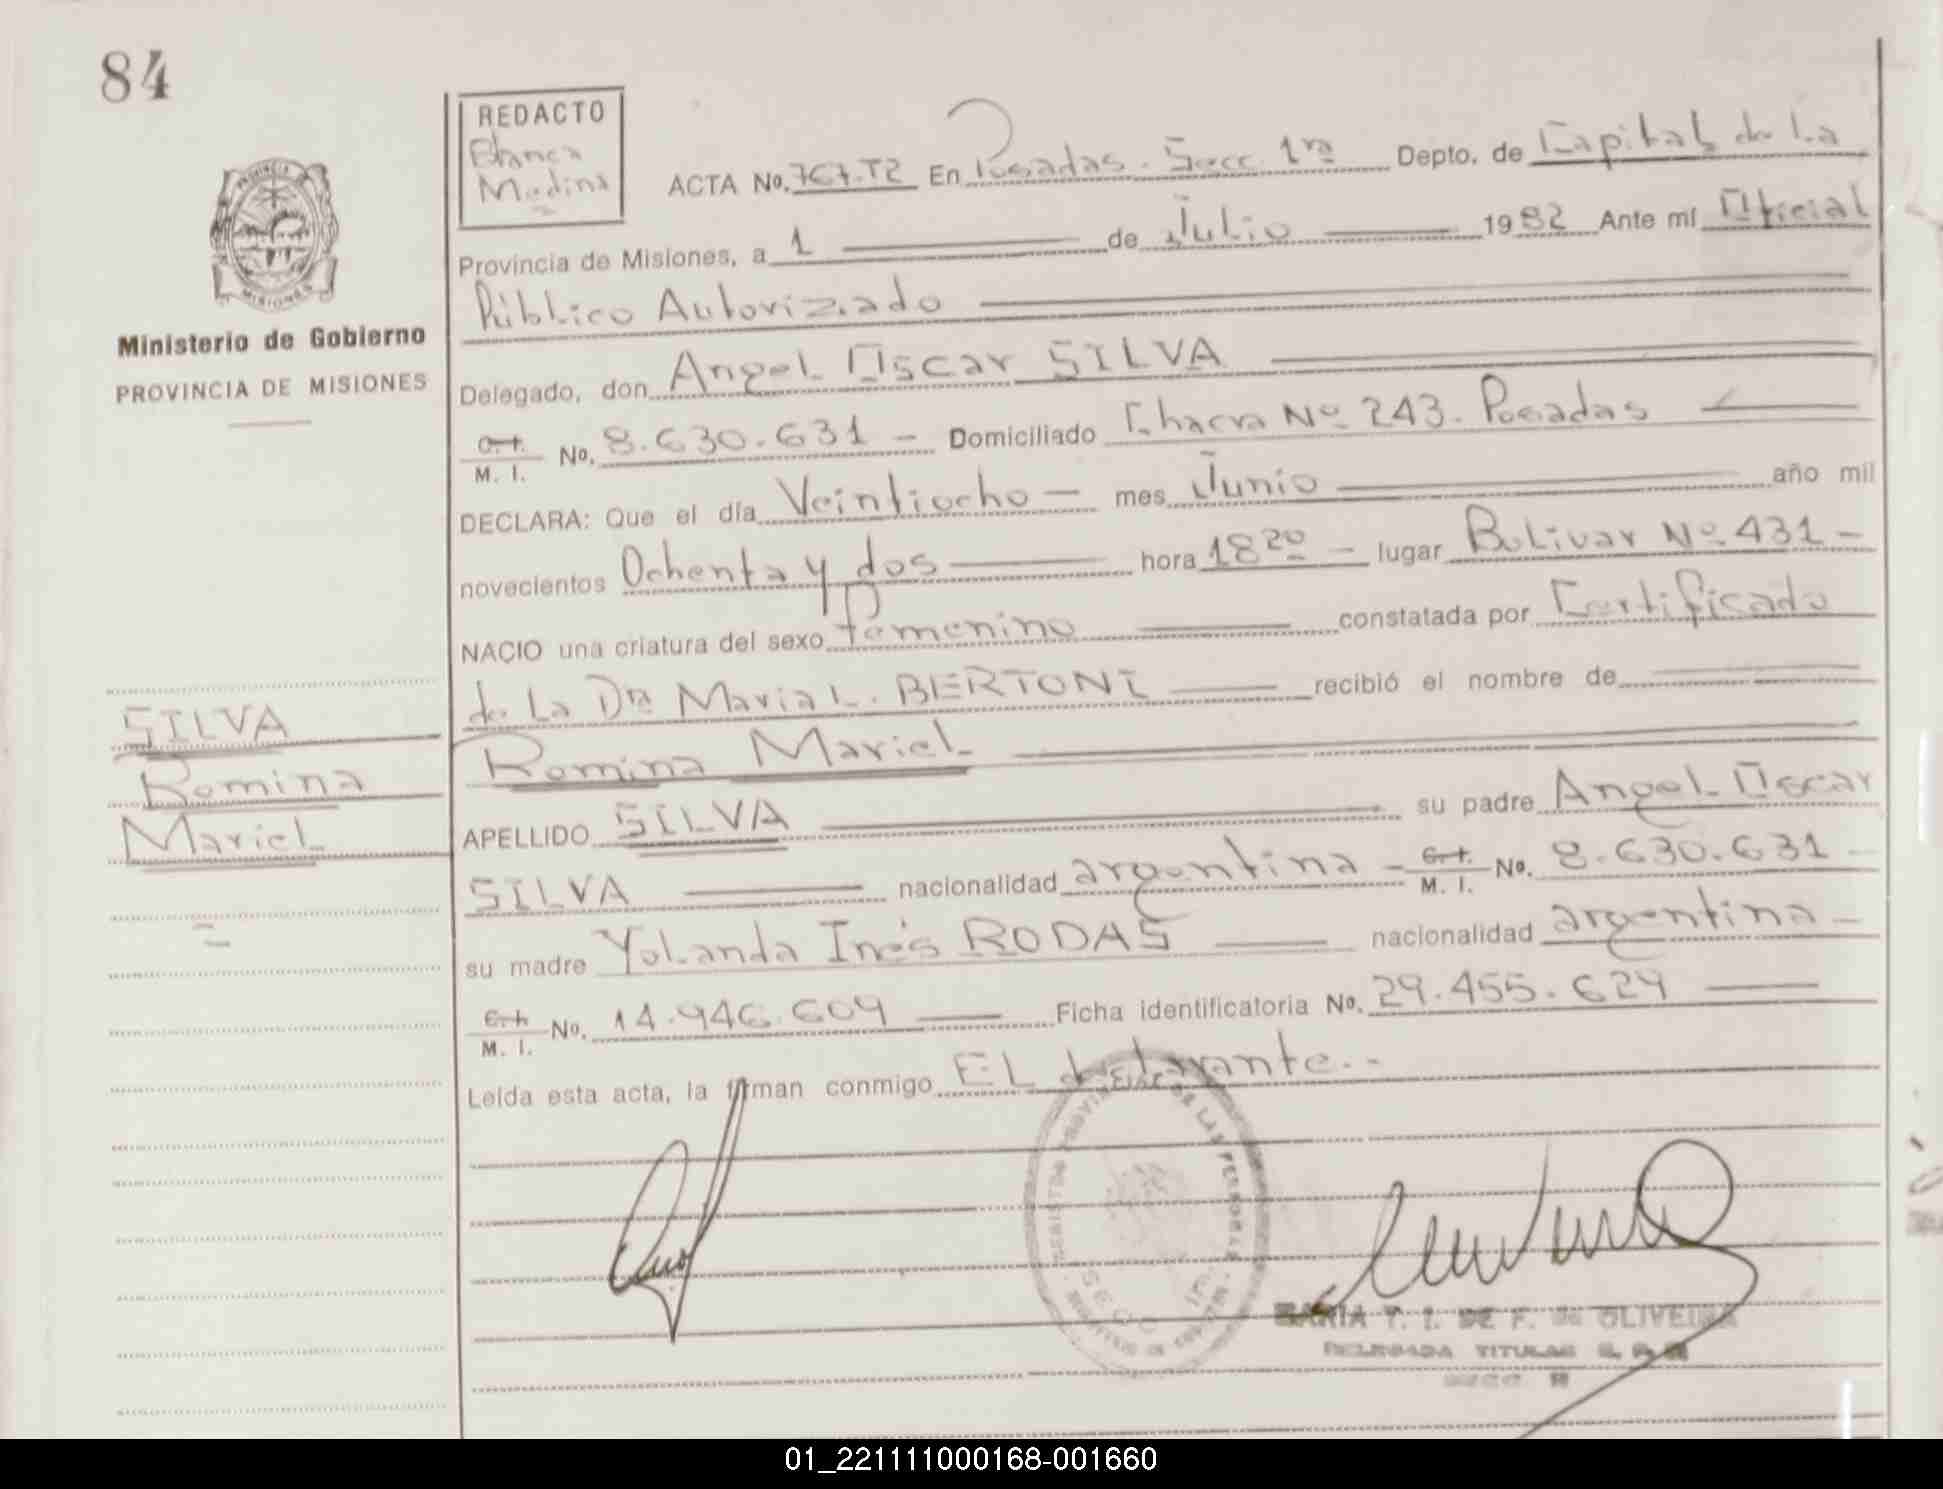 84
REDACTO
Blanca
Medina
ACTA No. 767.T2 En Posadas. Secc. 1ra Depto. de Capital de La
Provincia de Misiones, a 1 de Julio 1982 Ante mí Oficial
Público Autorizado
Ministerio de Gobierno
PROVINCIA DE MISIONES
Delegado, don Angel Oscar SILVA
C. I.
M. I. No. 8.630.631 - Domiciliado Chacra Nº 243. Posadas
DECLARA: Que el día Veintiocho — mes Junio año mil
novecientos Ochenta y dos hora 18 20 - lugar Bolivar Nº 431 -
NACIO una criatura del sexo femenino constatada por Certificado
de La Dra Maria L. BERTONI recibió el nombre de
Romina Mariel
SILVA
Romina
Mariel
APELLIDO SILVA su padre Angel Oscar
SILVA nacionalidad argentina - C. I. M. I. No. 8.630.631 -
su madre Yolanda Inés RODAS nacionalidad argentina -
C. I.
M. I. No. 14.946.609 Ficha identificatoria No. 29.455.629
Leída esta acta, la firman conmigo EL declarante..
MARIA T. I. DE F. de OLIVEIRA
DELEGADA TITULAR
01_221111000168-001660